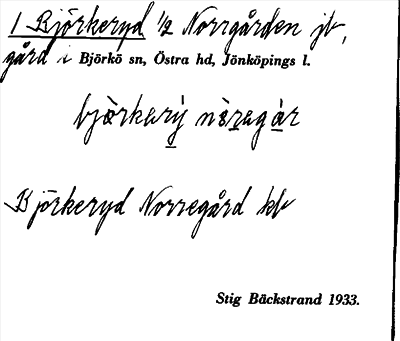 1 Björkeryd 1/2 Norrgården jb,
gård i Björkö sn, Östra hd, Jönköpings l.
Björkeryd Norregård kb
Stig Bäckstrand 1933.